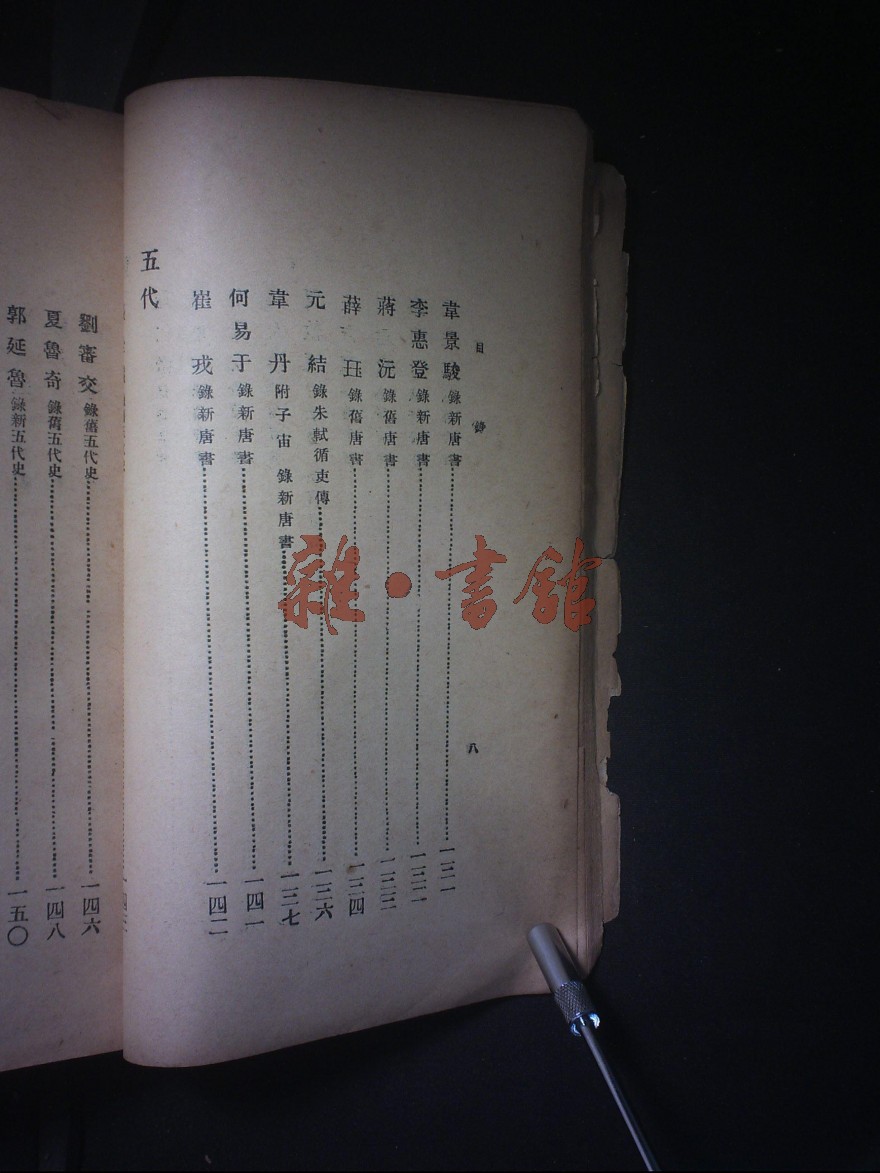 目錄 八
韋景駿 錄新唐書 一三一
李惠登 錄新唐書 一三二
蔣沇 錄舊唐書 一三三
薛珏 錄舊唐書 一三四
元結 錄朱軾循吏傳 一三六
韋丹 附子宙 錄新唐書 一三七
何易于 錄新唐書 一四一
崔戎 錄新唐書 一四二
五代
劉審交 錄舊五代史 一四六
夏魯奇 錄舊五代史 一四八
郭延魯 錄新五代史 一五〇
雜·書館